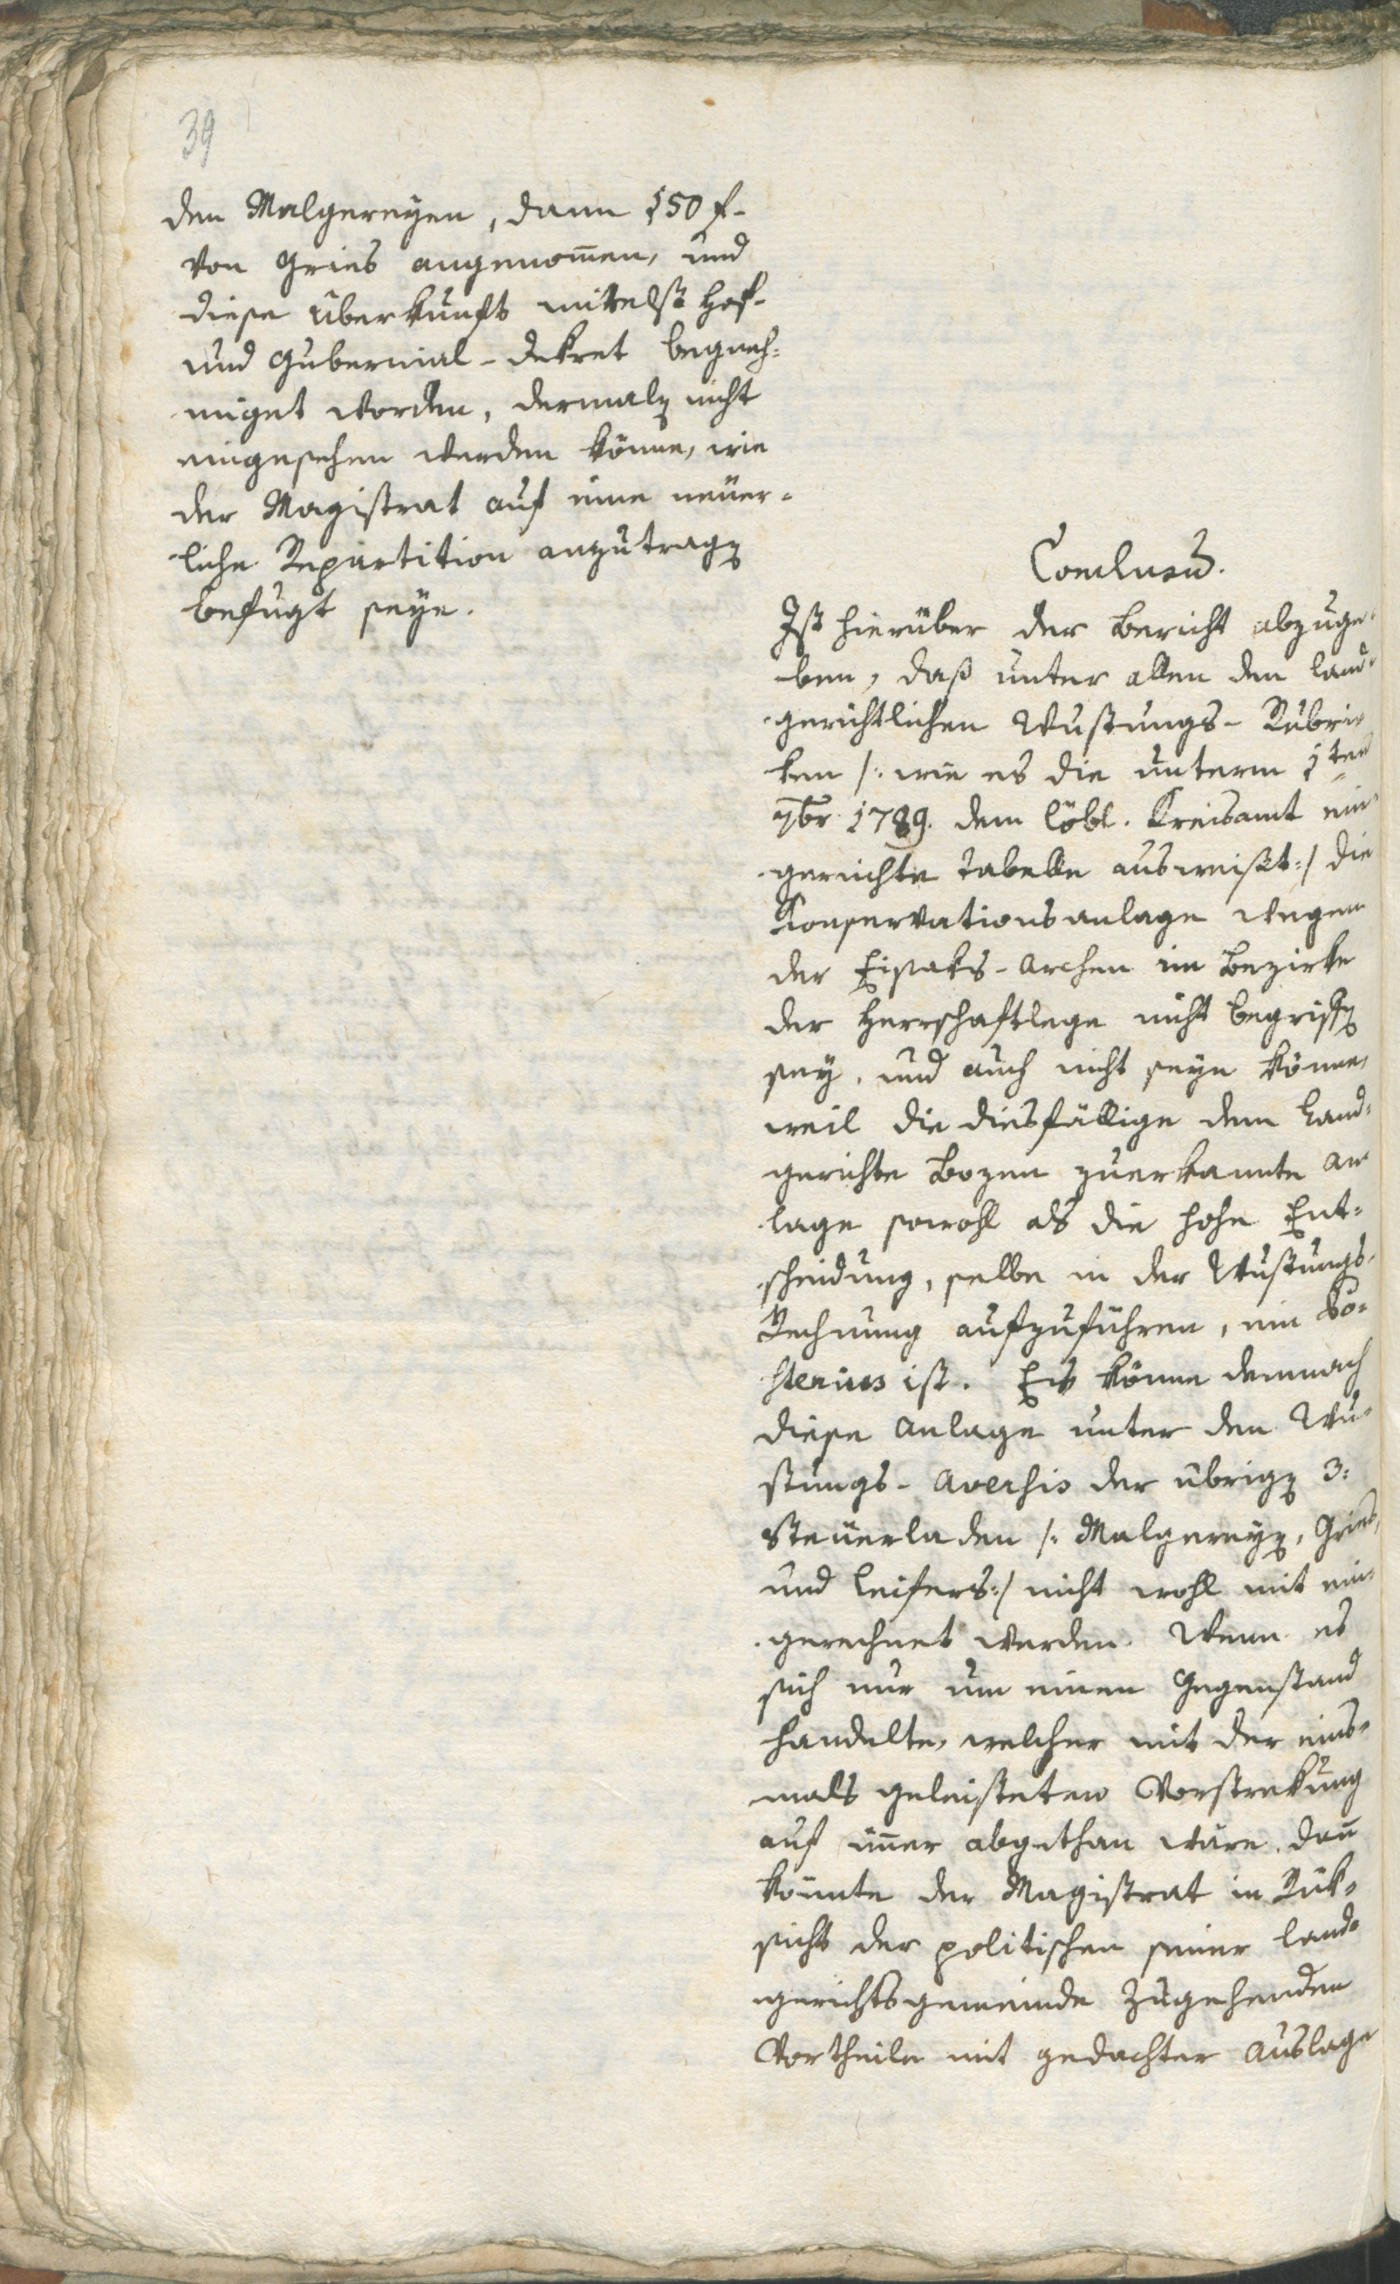 39
den Malgereyen, dann 150 f.
von Gries angenom̄en, und
diese Überkunft mittelst Hof-
und Gubernial-Dekret begneh-
miget worden, dermalen nicht
eingesehen werden könne, wie
der Magistrat auf eine neüer-
liche Repartition anzutragen
befugt seye.
Conclusū.
Ist hierüber der Bericht abzuge-
ben, daß unter allen den land-
gerichtlichen Wustungs-Rubri-
ken /: wie es die unterm 1ten
7br 1789. dem löbl. Kreisamt ein-
gereichte Tabelle ausweißt :/ die
Konservationsanlage wegen
der Eisaks-Archen im Bezirke
der Herrschaftlege nicht begriffen
sey, und auch nicht seyn könne,
weil die diesfällige dem Land-
gerichte Bozen zuerkannte An-
lage sowohl als die hohe Ent-
scheidung, selbe in der Wustungs-
Rechnung aufzuführen, ein Po-
sterius ist. Es könne demnach
diese Anlage unter den Wu-
stungs-Aversis der übrigen 3:
Steüerladen /: Malgereyen, Gries,
und Leifers :/ nicht wohl mit ein-
gerechnet werden. Wenn es
sich nur um einen Gegenstand
handelte, welcher mit der eins-
mals geleisteten Vorstrekung
auf im̄er abgethan wäre, dañ
könnte der Magistrat in Rük-
sicht der politischen seiner Land-
gerichtsgemeinde zugehenden
Vortheile mit gedachter Auslage